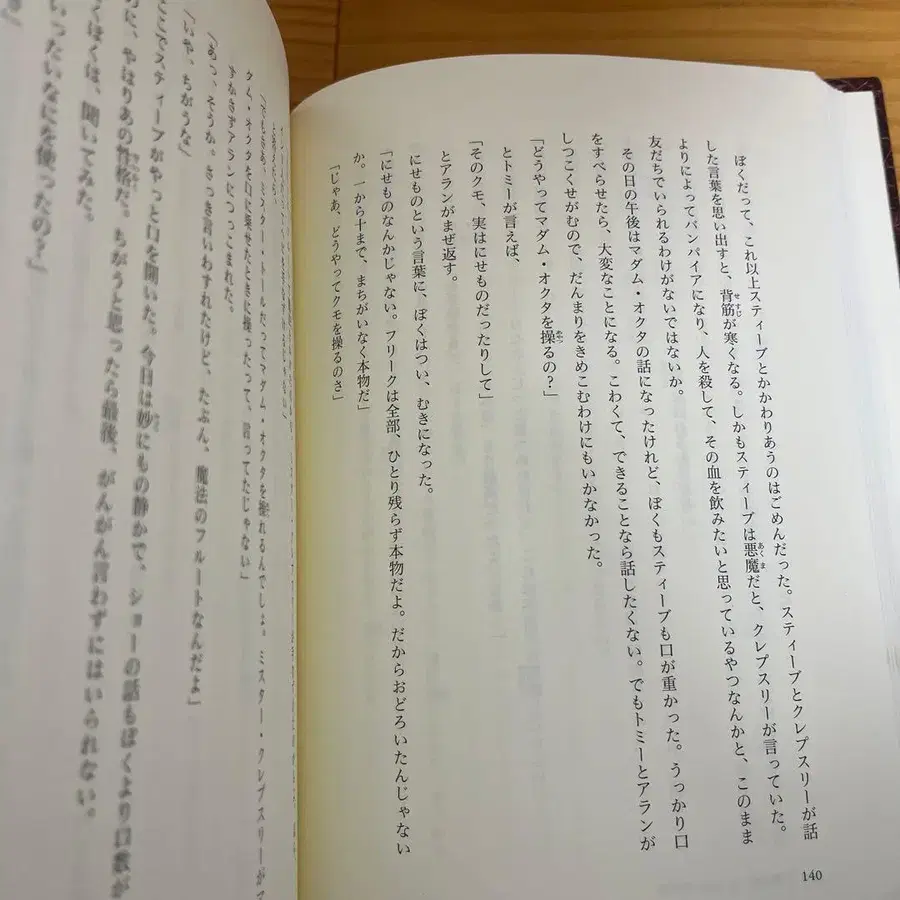 ぼくだって、これ以上スティーブとかかわりあうのはごめんだった。スティーブとクレプスリーが話
した言葉を思い出すと、背筋が寒くなる。しかもスティーブは悪魔だと、クレプスリーが言っていた。
よりによってバンパイアになり、人を殺して、その血を飲みたいと思っているやつなんかと、このまま
友だちでいられるわけがないではないか。
その日の午後はマダム・オクタの話になったけれど、ぼくもスティーブも口が重かった。うっかり口
をすべらせたら、大変なことになる。こわくて、できることなら話したくない。でもトミーとアランが
しつこくせがむので、だんまりをきめこむわけにもいかなかった。
「どうやってマダム・オクタを操るの?」
とトミーが言えば、
「そのクモ、実はにせものだったりして」
とアランがまぜ返す。
にせものという言葉に、ぼくはつい、むきになった。
「にせものなんかじゃない。フリークは全部、ひとり残らず本物だよ。だからおどろいたんじゃない
か。一から十まで、まちがいなく本物だ」
「じゃあ、どうやってクモを操るのさ」
140
「でもさあ、ミスター・トールだってマダム・オクタを操れるんでしょ。ミスター・クレプスリーがマ
ダム・オクタを口に乗せたときに操ったって、言ってたじゃない」
すかさずアランにつっこまれた。
「あっ、そうか。さっき言いわすれたけど、たぶん、魔法のフルートなんだよ」
「いや、ちがうな」
ここでスティーブがやっと口を開いた。今日は妙にもの静かで、ショーの話もぼくより口数が
のに、やはりあの性格だ。ちがうと思ったら最後、がんがん言わずにはいられない。
ぼくは、聞いてみた。
いったいなにを使ったの?」